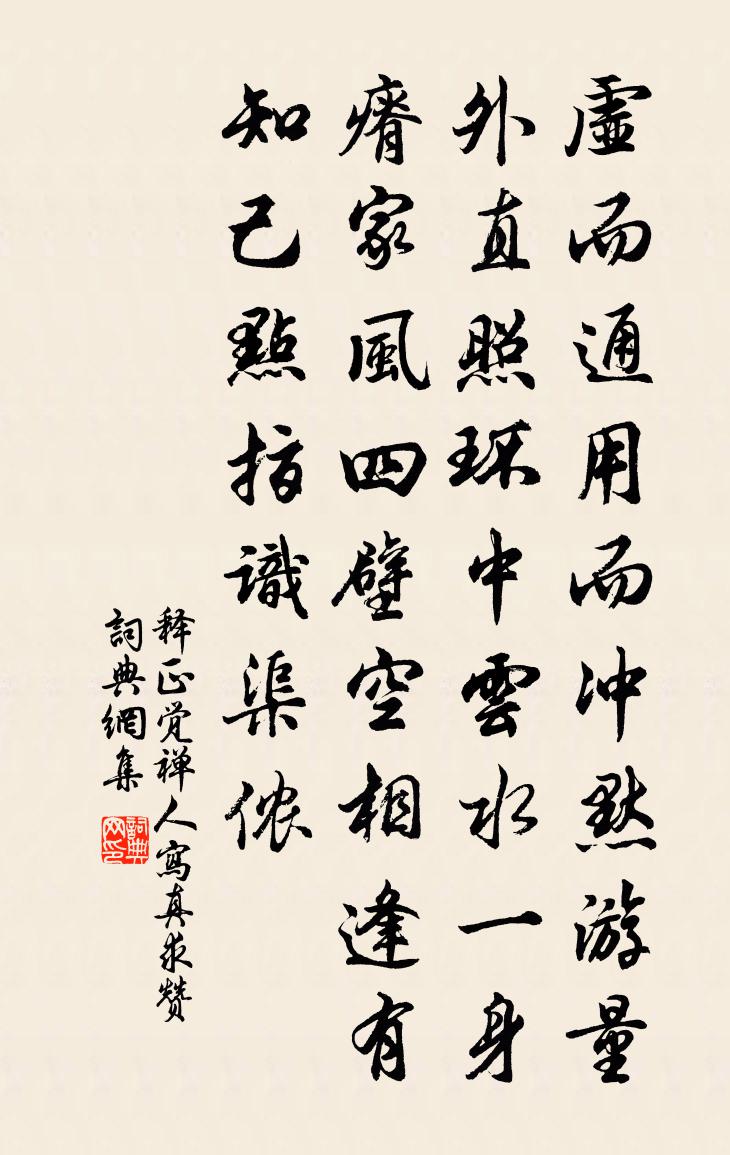 虛而通用而冲默游量
外直照环中雲水一身
瘠家風四壁空相逢有
知己點指識渠侬
释正觉禅人寫真求赞
詞典網集
詞典网印